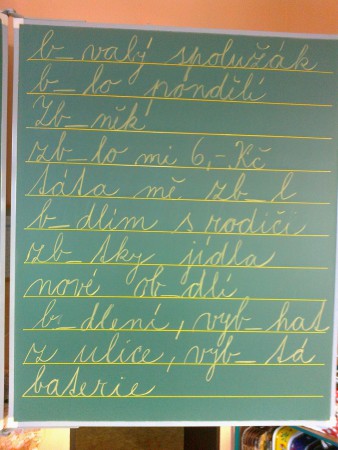 b_valý spolužák
b_lo pondělí
Zb_něk
zb_lo mi 6,-Kč
táta mě zb_l
b_dlím s rodiči
zb_tky jídla
nové ob_dlí
b_dlení, vyb_hat
z ulice, vyb_tá
baterie